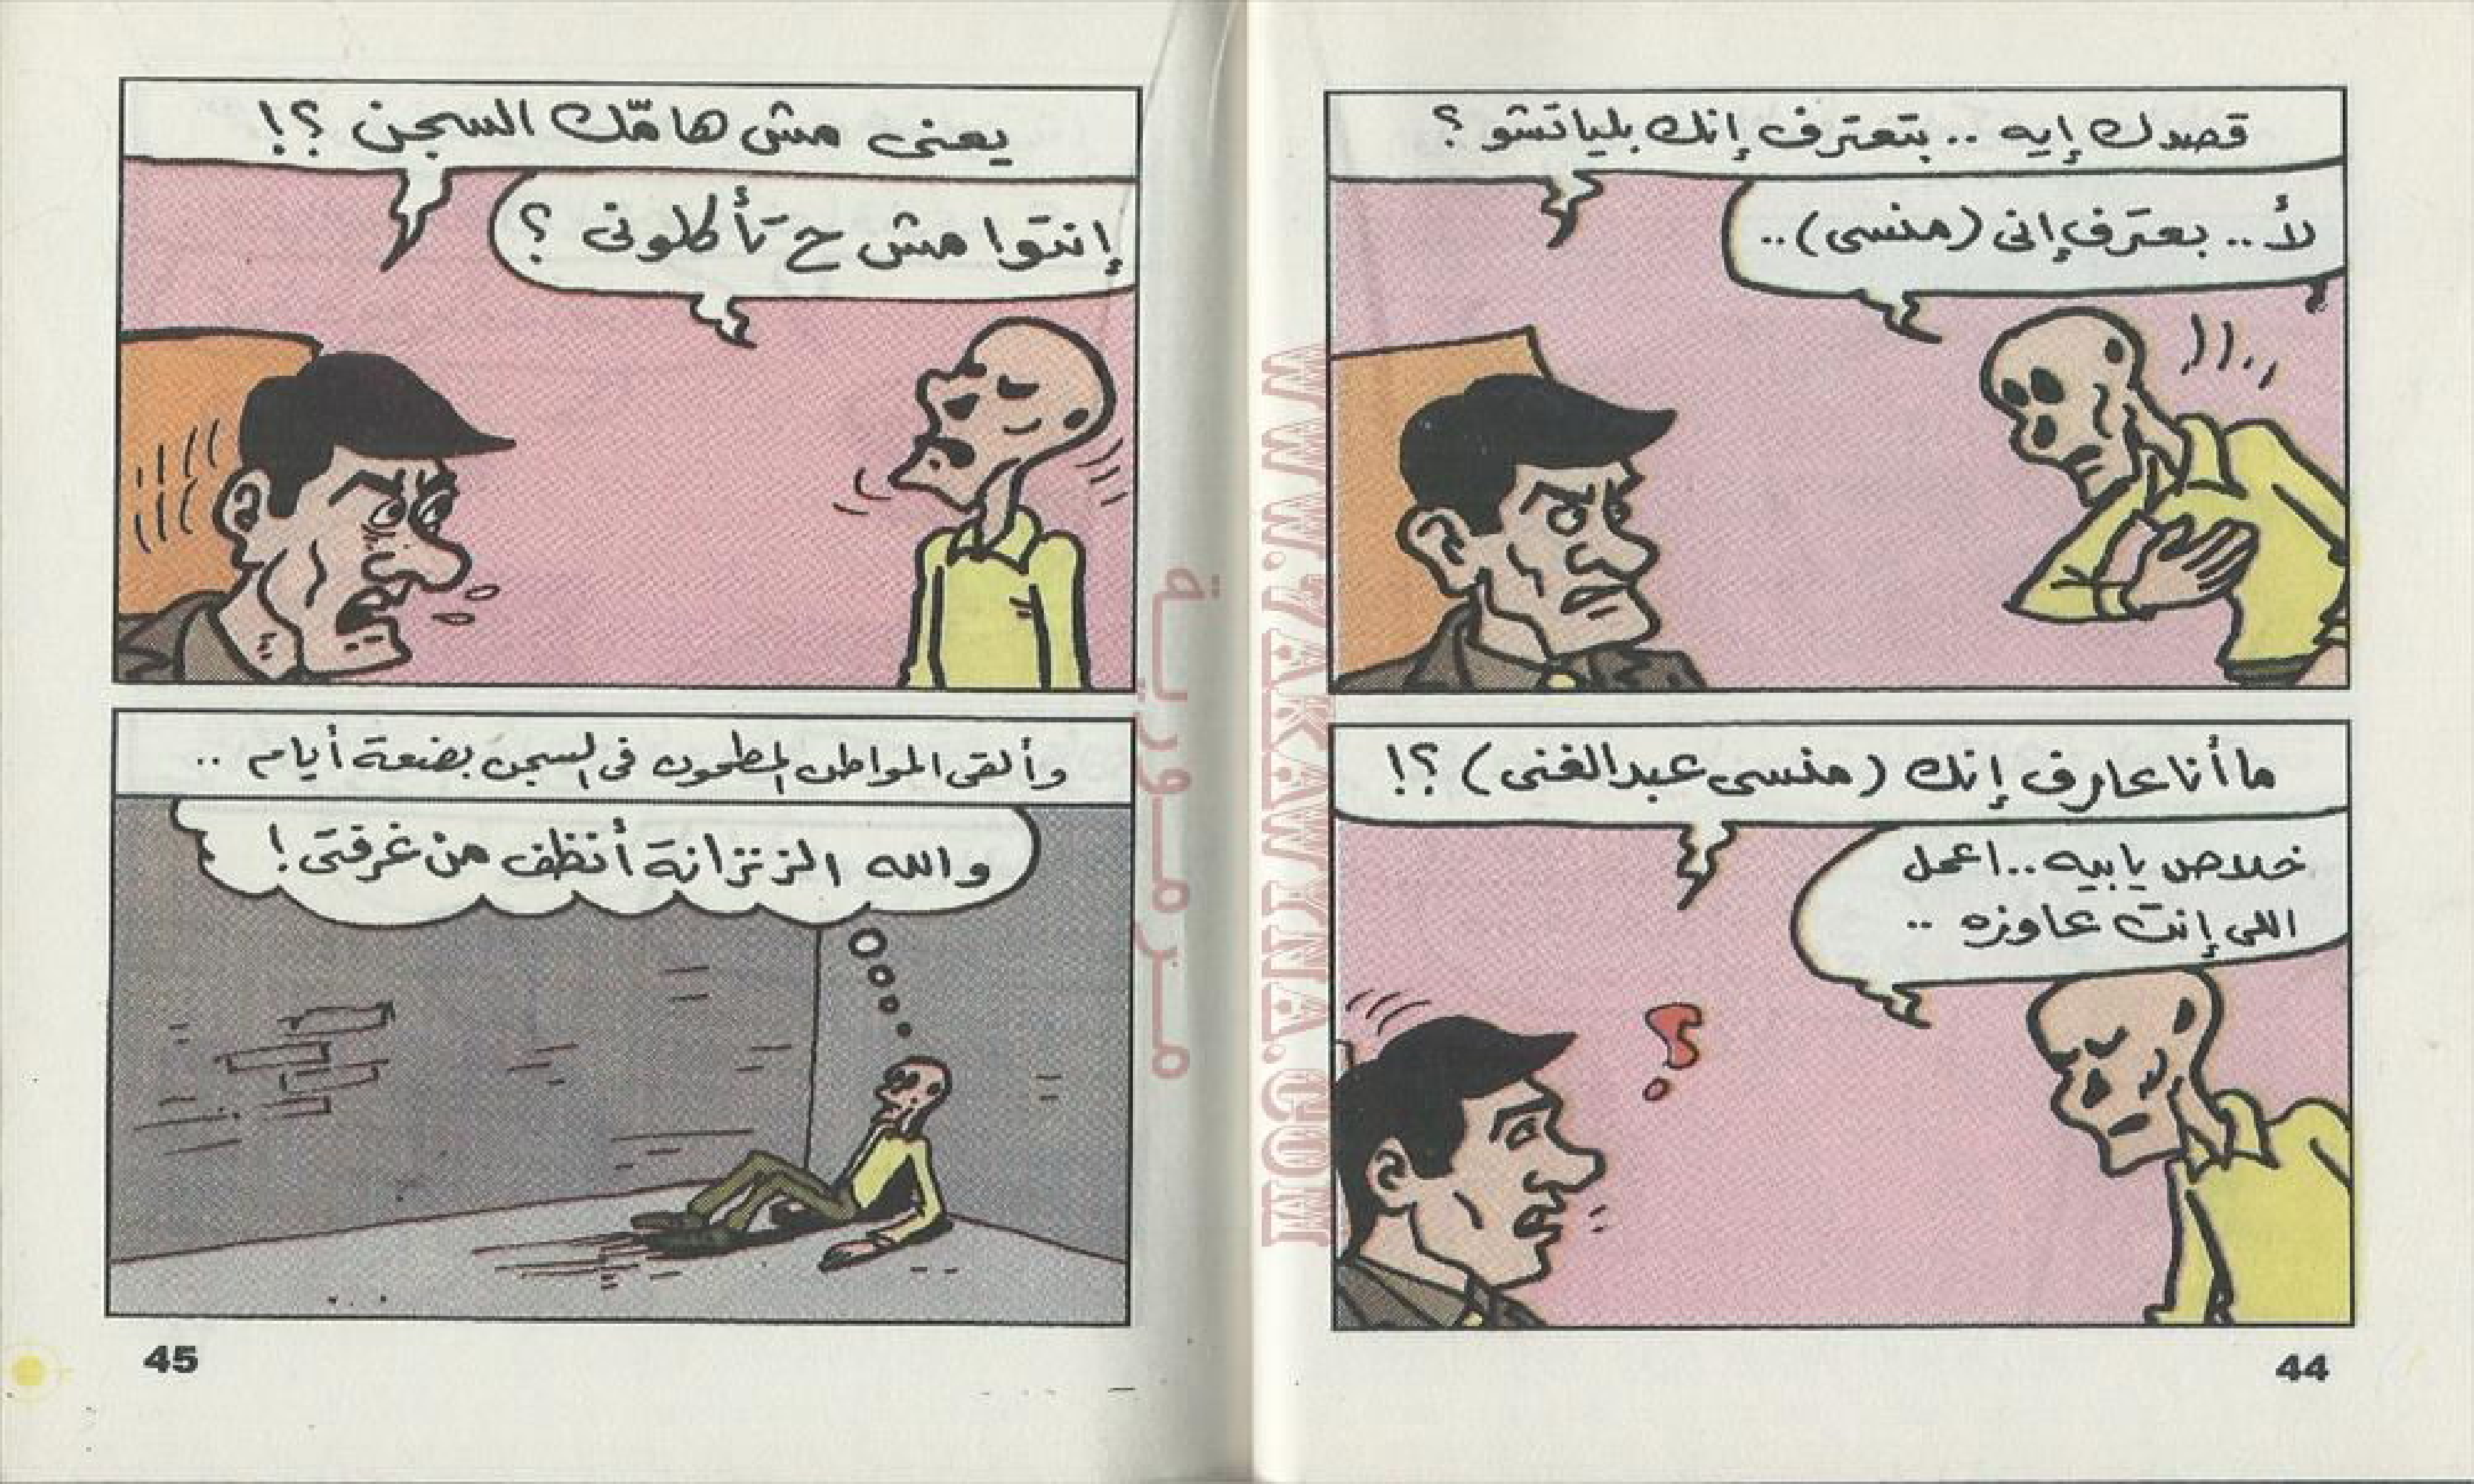 قصدك إيه .. بتعترف إنك بلياتشو ؟
لأ .. بعترف إنى (منسى) ..
ما أنا عارف إنك (منسى عبد الغنى) ؟!
خلاص يا بيه .. اعمل
اللى إنت عاوزه ..
44
يعنى مش هامّك السجن ؟!
إنتوا مش ح تأكلونى ؟
وألقى المواطن المطحون فى السجن بضعة أيام ..
والله الزنزانة أنظف من غرفتى !
45
WWW.7AKAWYNA.COM